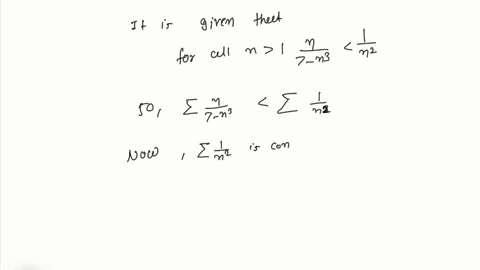 It is given thett
for call n > 1 n/7-n³ < 1/n²
so, Σ n/7-n³ < Σ 1/n²
Now, Σ 1/n² is con